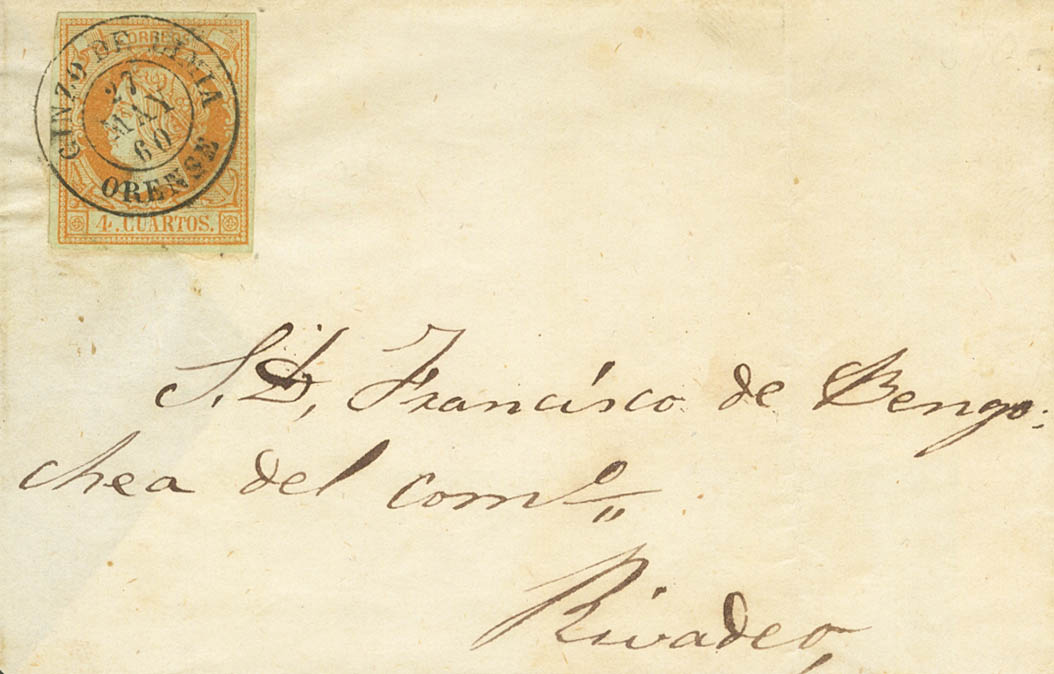 CORREOS
GINZO DE LIMIA
27
MAY
60
ORENSE
4. CUARTOS.
S. D, Francisco de Bengo:
chea del comᵒ
Rivadeo,